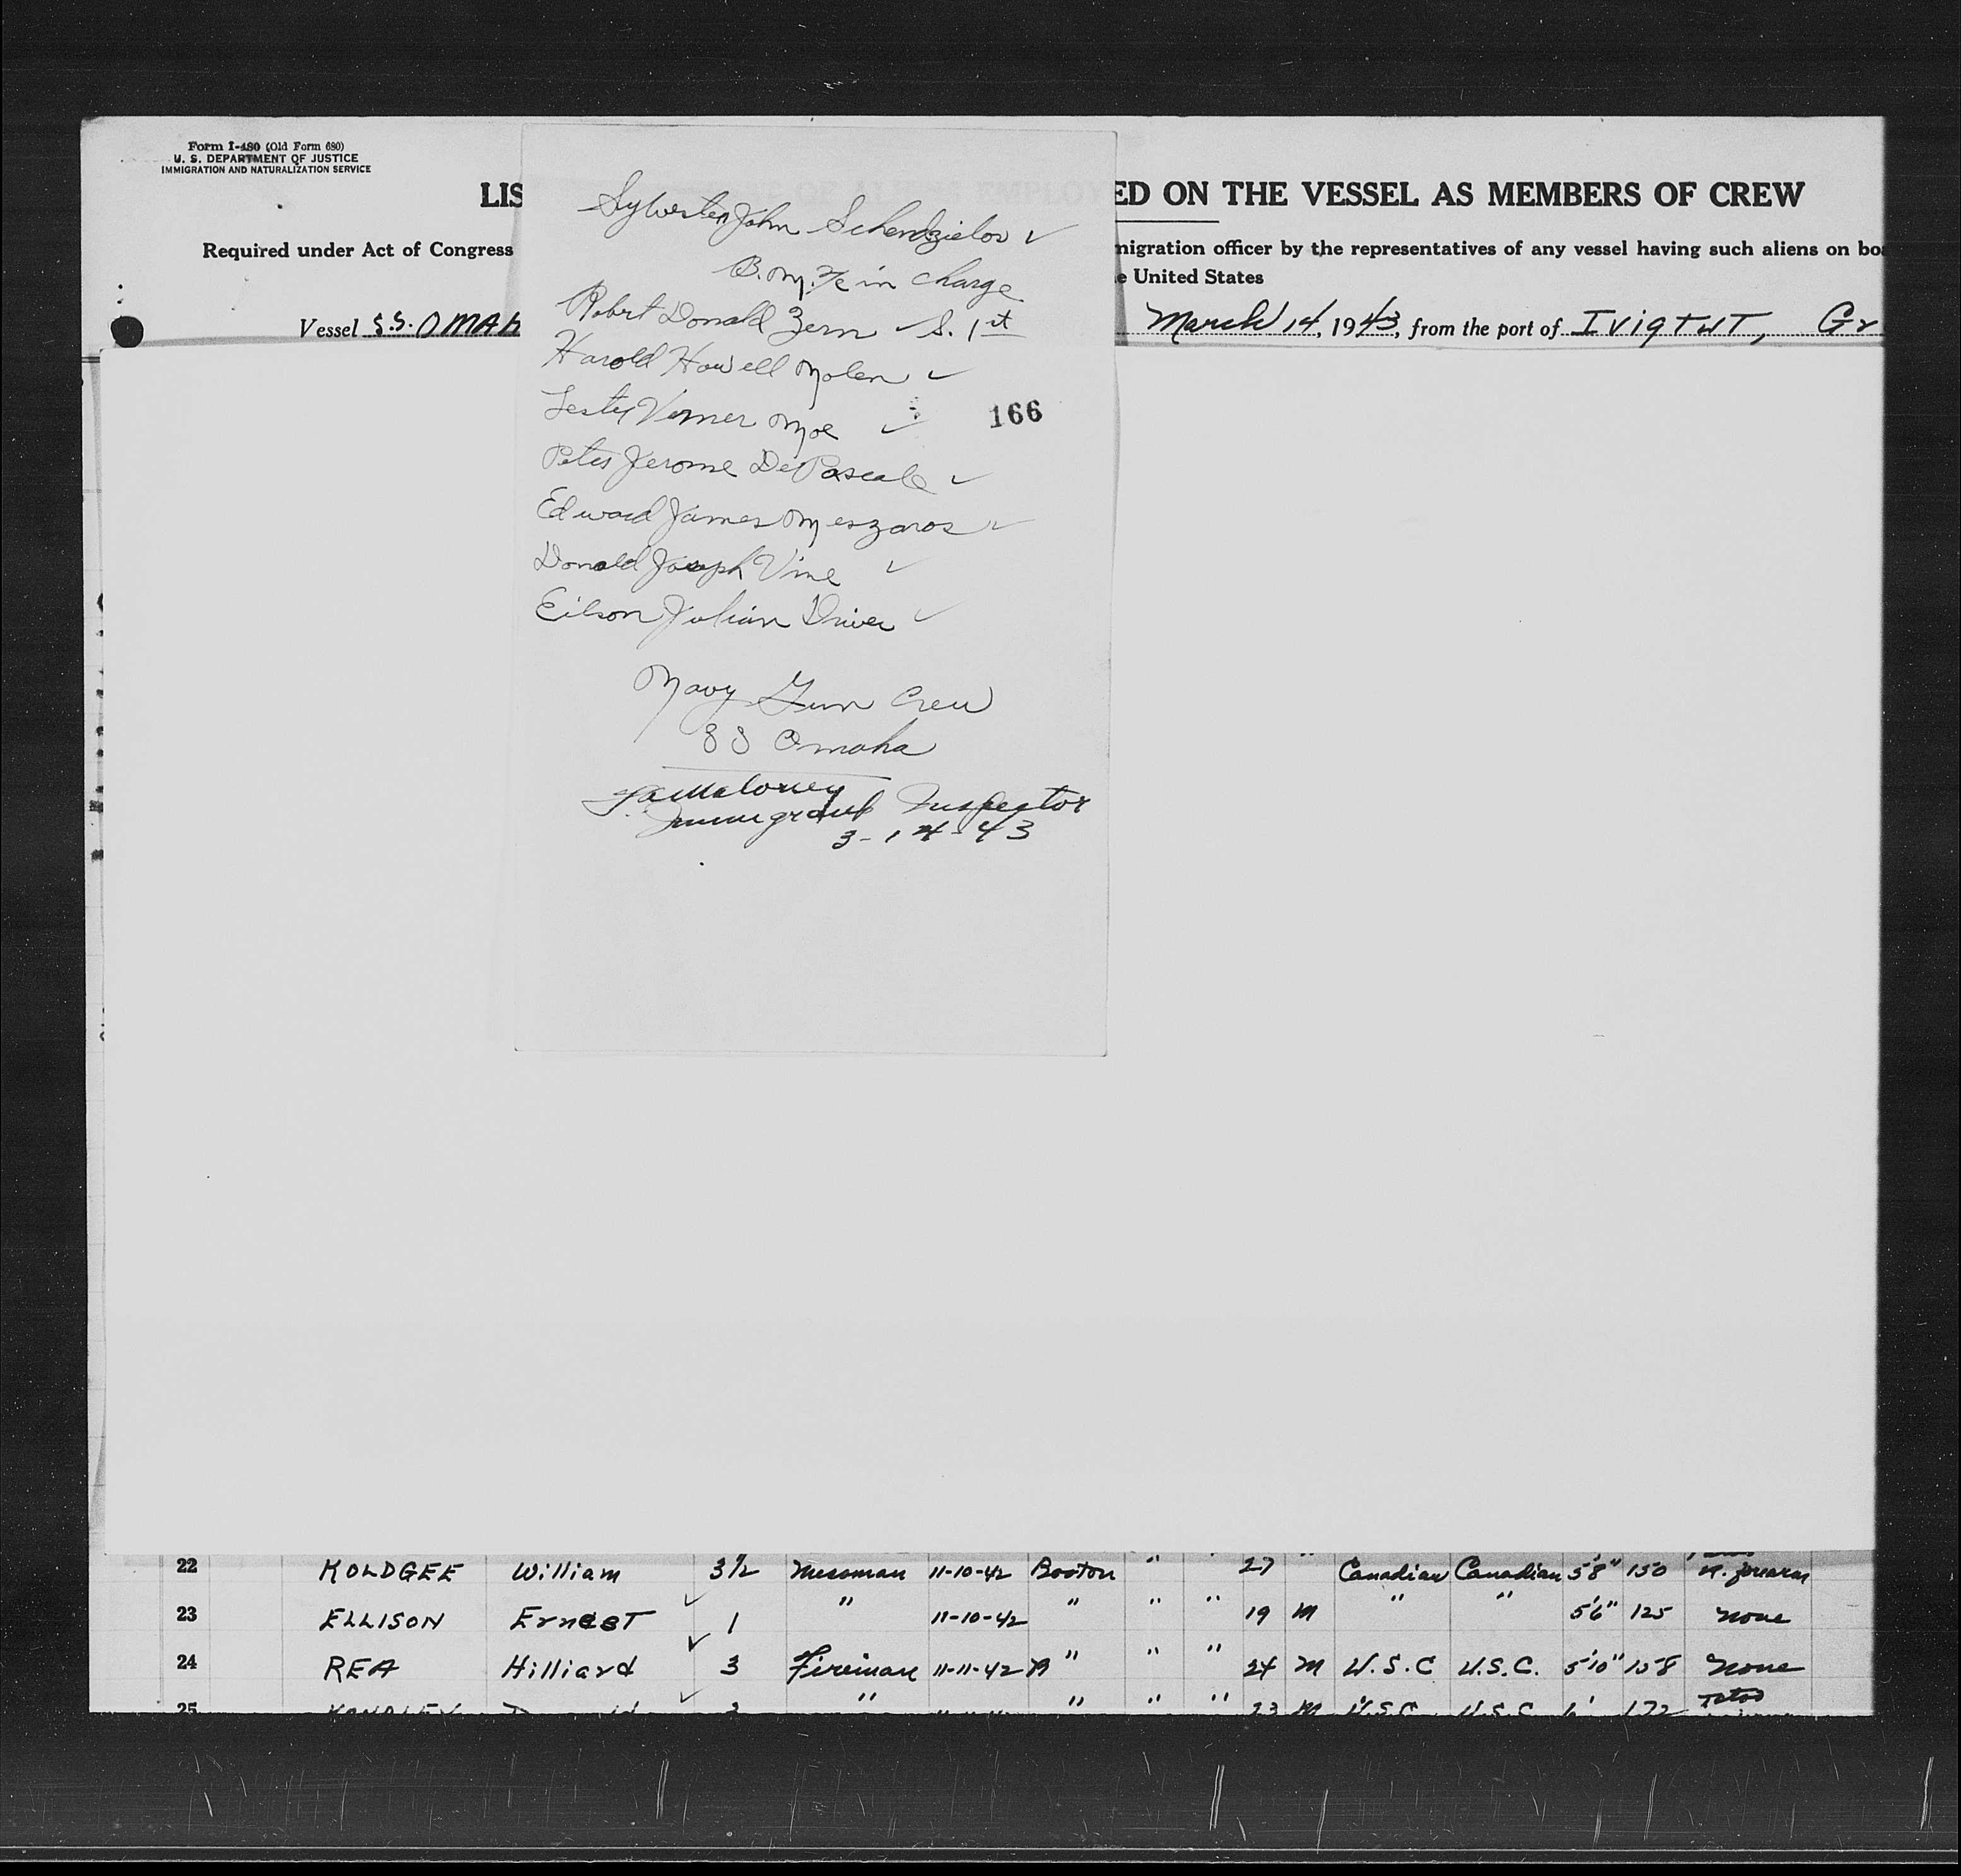 Form I-480 (Old Form 680)
U. S. DEPARTMENT OF JUSTICE
IMMIGRATION AND NATURALIZATION SERVICE
LIS
ED ON THE VESSEL AS MEMBERS OF CREW
Required under Act of Congress
migration officer by the representatives of any vessel having such aliens on boa
e United States
Vessel S.S. OMAH
March 14, 1943, from the port of Ivigtut, Gr
Sylvester John Schendzielos ✓
B.M. 2/c in charge
Robert Donald Zern ✓ S. 1st
Harold Howell Molen ✓
Lester Verner Moe ✓
166
Peter Jerome DePascale ✓
Edward James Meszaros ✓
Donald Joseph Vine ✓
Eilson Julian Driver ✓
Navy Gun Crew
SS Omaha
Maloney
Immigrant Inspector
3-14-43
22 KOLDGEE William 3 1/2 Messman 11-10-42 Boston " 27 " Canadian Canadian 5'8" 150 forearm
23 ELLISON Ernest 1 " 11-10-42 " " " 19 M " " 5'6" 125 none
24 REA Hilliard 3 Fireman 11-11-42 " " " 24 M U.S.C U.S.C. 5'10" 158 none
25 " " " " 23 M U.S.C U.S.C 6' 172